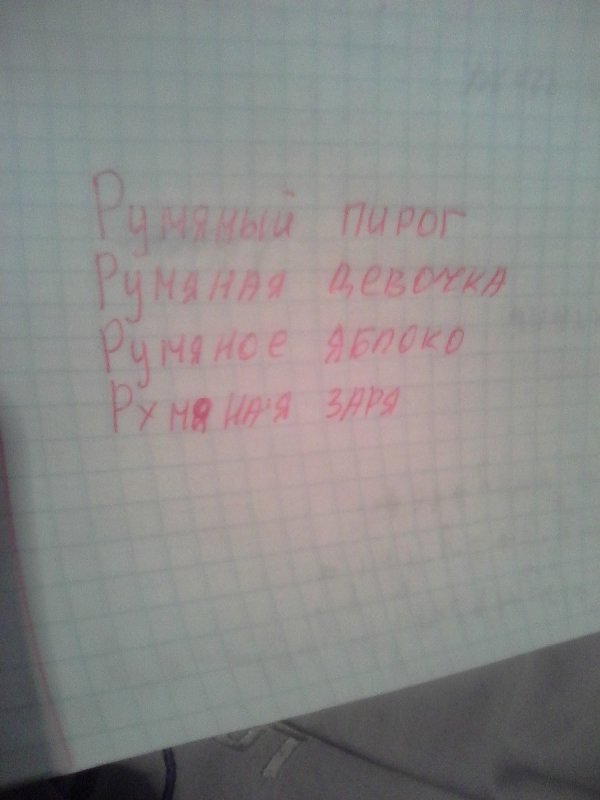 Румяный пирог
Румяная девочка
Румяное яблоко
Румяная заря